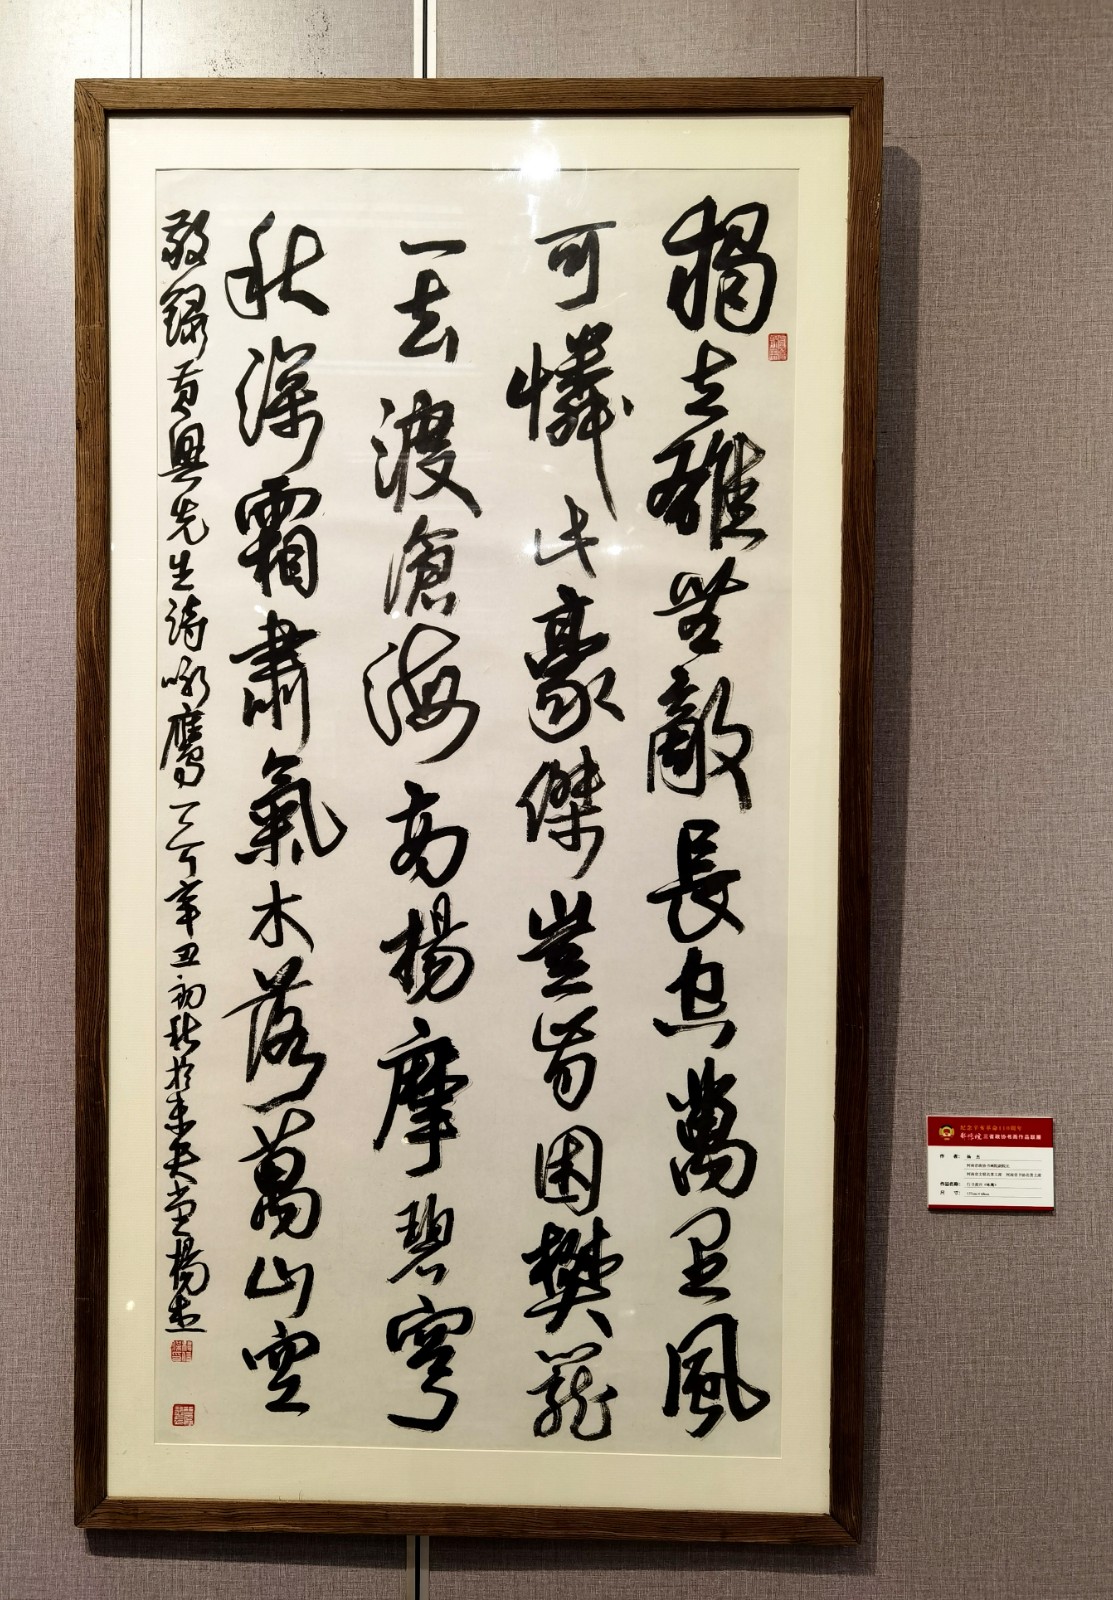 獨立雄無敵長空萬里風
可憐此豪傑豈肯困樊籠
一去渡滄海高揚摩碧穹
秋深霜肅氣木落萬山空
敬錄黃興先生詩咏鷹一首辛丑初秋於楊杰
纪念辛亥革命110周年
三省政协书画作品联展
作 者: 杨 杰
作品名称:
尺 寸: